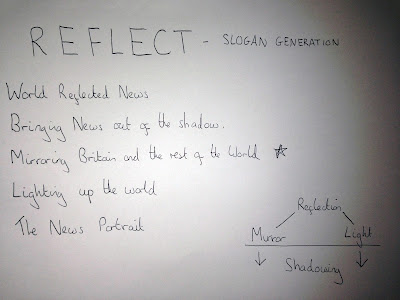 REFLECT - SLOGAN GENERATION
World Reflected News
Bringing News out of the shadow.
Mirroring Britain and the rest of the World ☆
Lighting up the world
The News Portrait
Reflection
Mirror Light
↓ Shadowing ↓